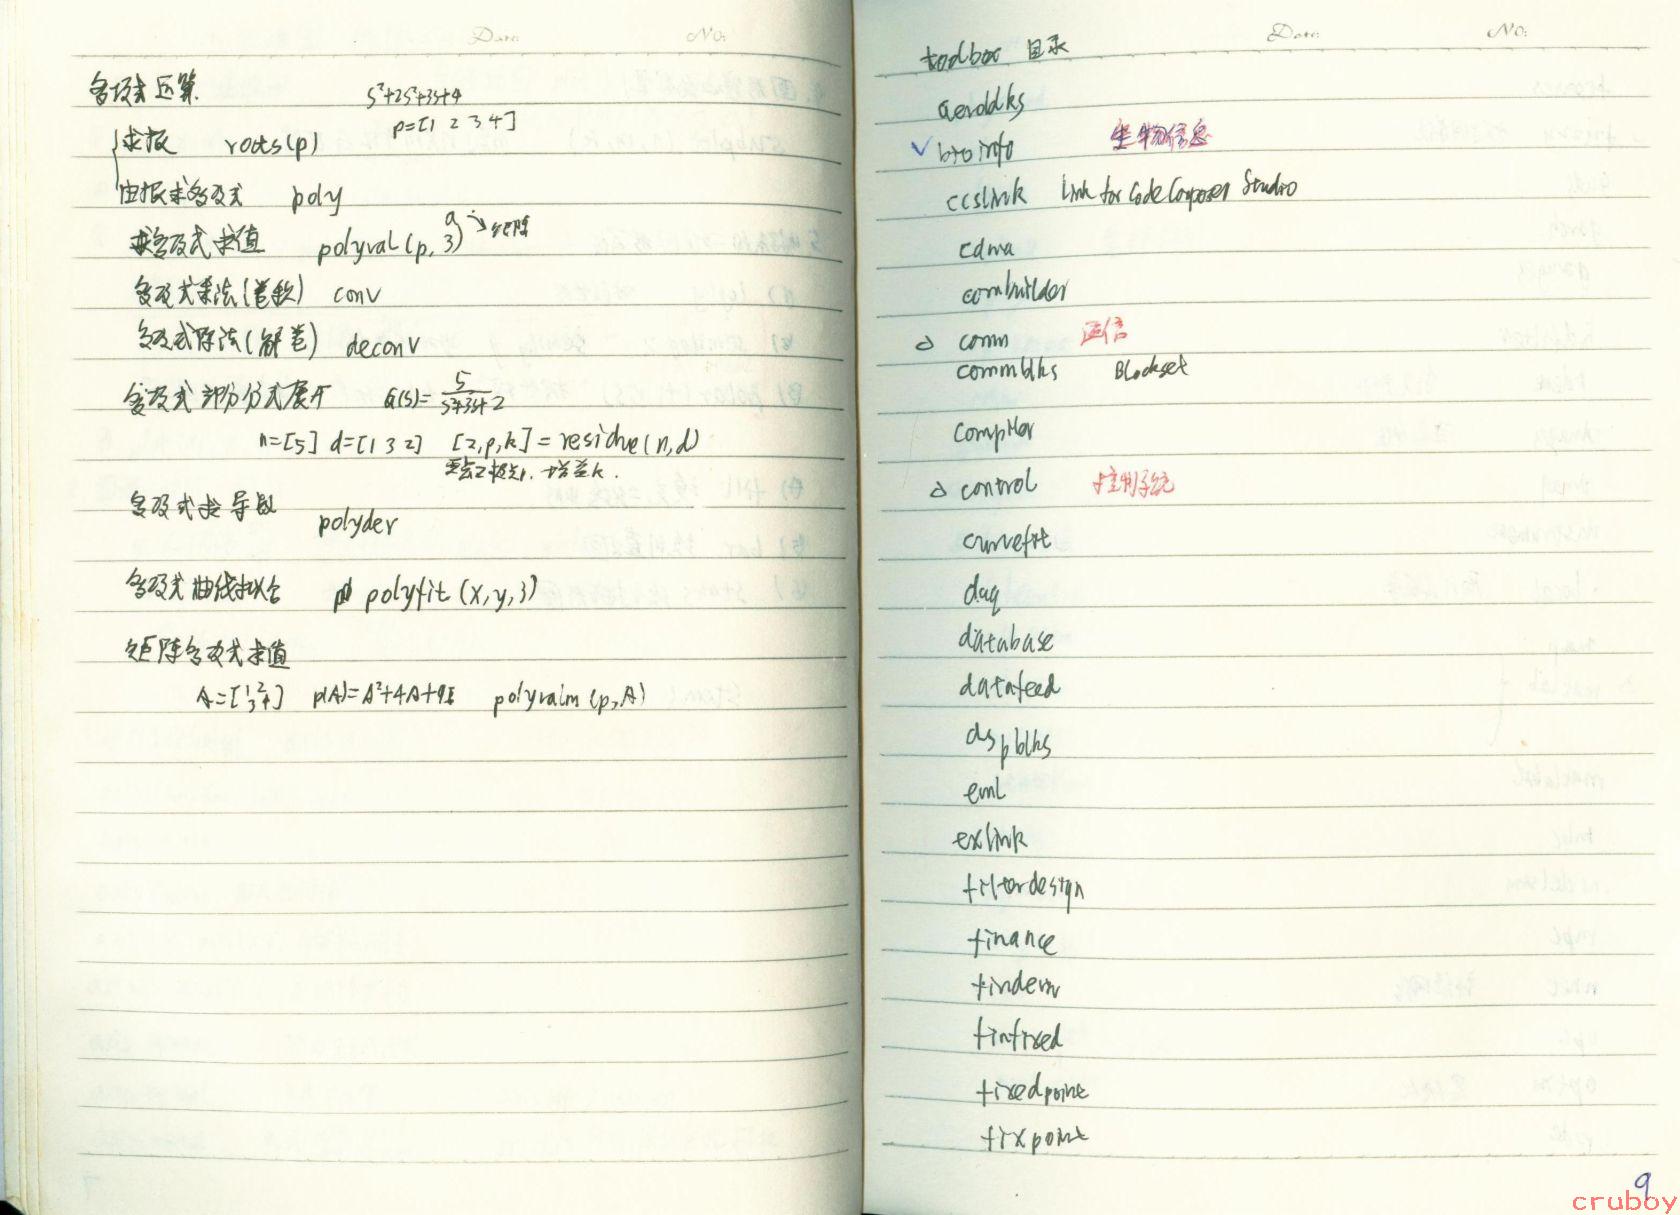 Date: No:
多项式运算 s³+2s²+3s+4
p=[1 2 3 4]
求根 roots(p)
由根求多项式 poly
多项式求值 polyval(p, 3) a→矩阵
多项式乘法(卷积) conv
多项式除法(解卷) deconv
多项式部分分式展开 G(s)=5/s²+3s+2
n=[5] d=[1 3 2] [z,p,k]=residue(n,d)
零点z 极点p. 增益k.
多项式求导数 polyder
多项式曲线拟合 polyfit(x,y,3)
矩阵多项式求值
A=[1 2 3 4] p(A)=A²+4A+9I polyvalm(p,A)
Date: No:
toolbox 目录
aeroblks
√ bioinfo 生物信息
ccslink Link for Code Composer Studio
cdma
combuilder
△ comm 通信
commblks Blockset
compiler
△ control 控制系统
curvefit
daq
database
datafeed
dspblks
eml
exlink
filterdesign
finance
finderiv
finfixed
fixedpoint
fixpoint
9
cruboy